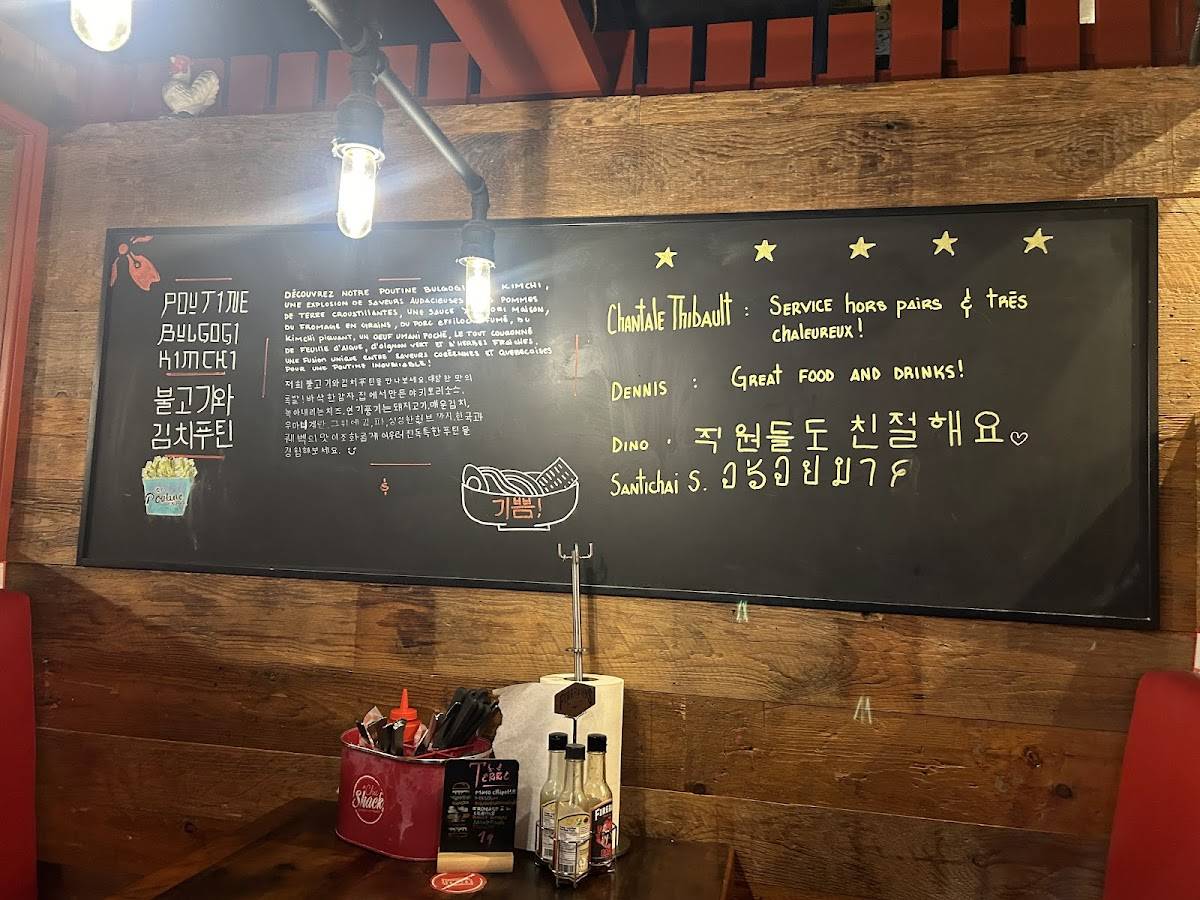 POUTINE
BULGOGI
KIMCHI
불고기와
김치푸틴
Poutine
DÉCOUVREZ NOTRE POUTINE BULGOGI KIMCHI,
UNE EXPLOSION DE SAVEURS AUDACIEUSES POMMES
DE TERRE CROUSTILLANTES, UNE SAUCE MAISON,
DU FROMAGE EN GRAINS, DU PORC EFFILOCHÉ FUMÉ, DU
KIMCHI PIQUANT, UN OEUF UMAMI POCHÉ, LE TOUT COURONNÉ
DE FEUILLE D'ALGUE, D'OIGNON VERT ET D'HERBES FRAÎCHES,
UNE FUSION UNIQUE ENTRE SAVEURS CORÉENNES ET QUÉBÉCOISES
POUR UNE POUTINE INOUBLIABLE!
저희 불고기와김치푸틴을 만나보세요. 대담한 맛의
폭발! 바삭한감자, 집에서만든야키토리소스,
녹아내리는치즈, 연기풍기는돼지고기, 매운김치,
우마미계란, 그위에김, 파, 싱싱한허브까지. 한국과
퀘벡의맛이조화롭게어우러진독특한푸틴을
경험해보세요.
&
기쁨!
CHANTALE THIBAULT : SERVICE HORS PAIRS & TRÈS
CHALEUREUX!
DENNIS : GREAT FOOD AND DRINKS!
DINO : 직원들도 친절해요
SANTICHAI S. อร่อยมาก
Chic
Shack